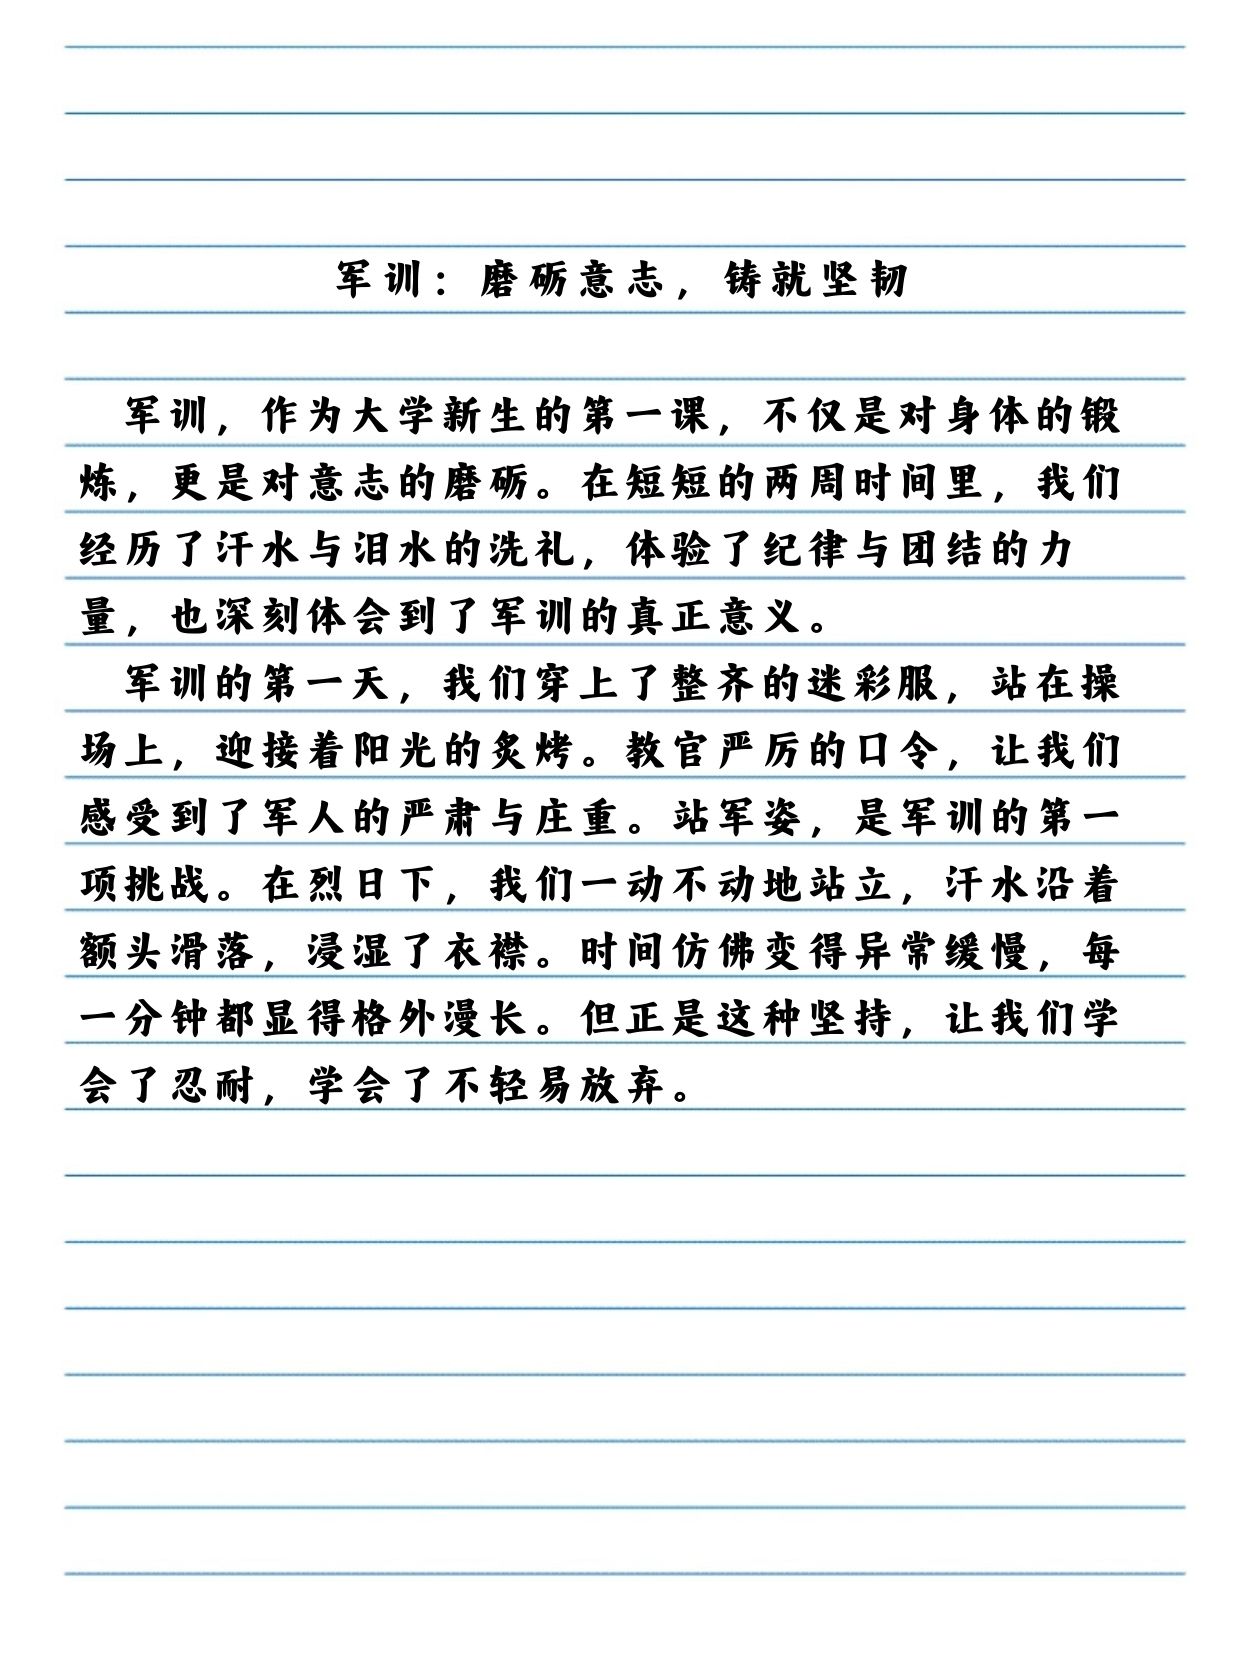 军训：磨砺意志，铸就坚韧
军训，作为大学新生的第一课，不仅是对身体的锻
炼，更是对意志的磨砺。在短短的两周时间里，我们
经历了汗水与泪水的洗礼，体验了纪律与团结的力
量，也深刻体会到了军训的真正意义。
军训的第一天，我们穿上了整齐的迷彩服，站在操
场上，迎接着阳光的炙烤。教官严厉的口令，让我们
感受到了军人的严肃与庄重。站军姿，是军训的第一
项挑战。在烈日下，我们一动不动地站立，汗水沿着
额头滑落，浸湿了衣襟。时间仿佛变得异常缓慢，每
一分钟都显得格外漫长。但正是这种坚持，让我们学
会了忍耐，学会了不轻易放弃。